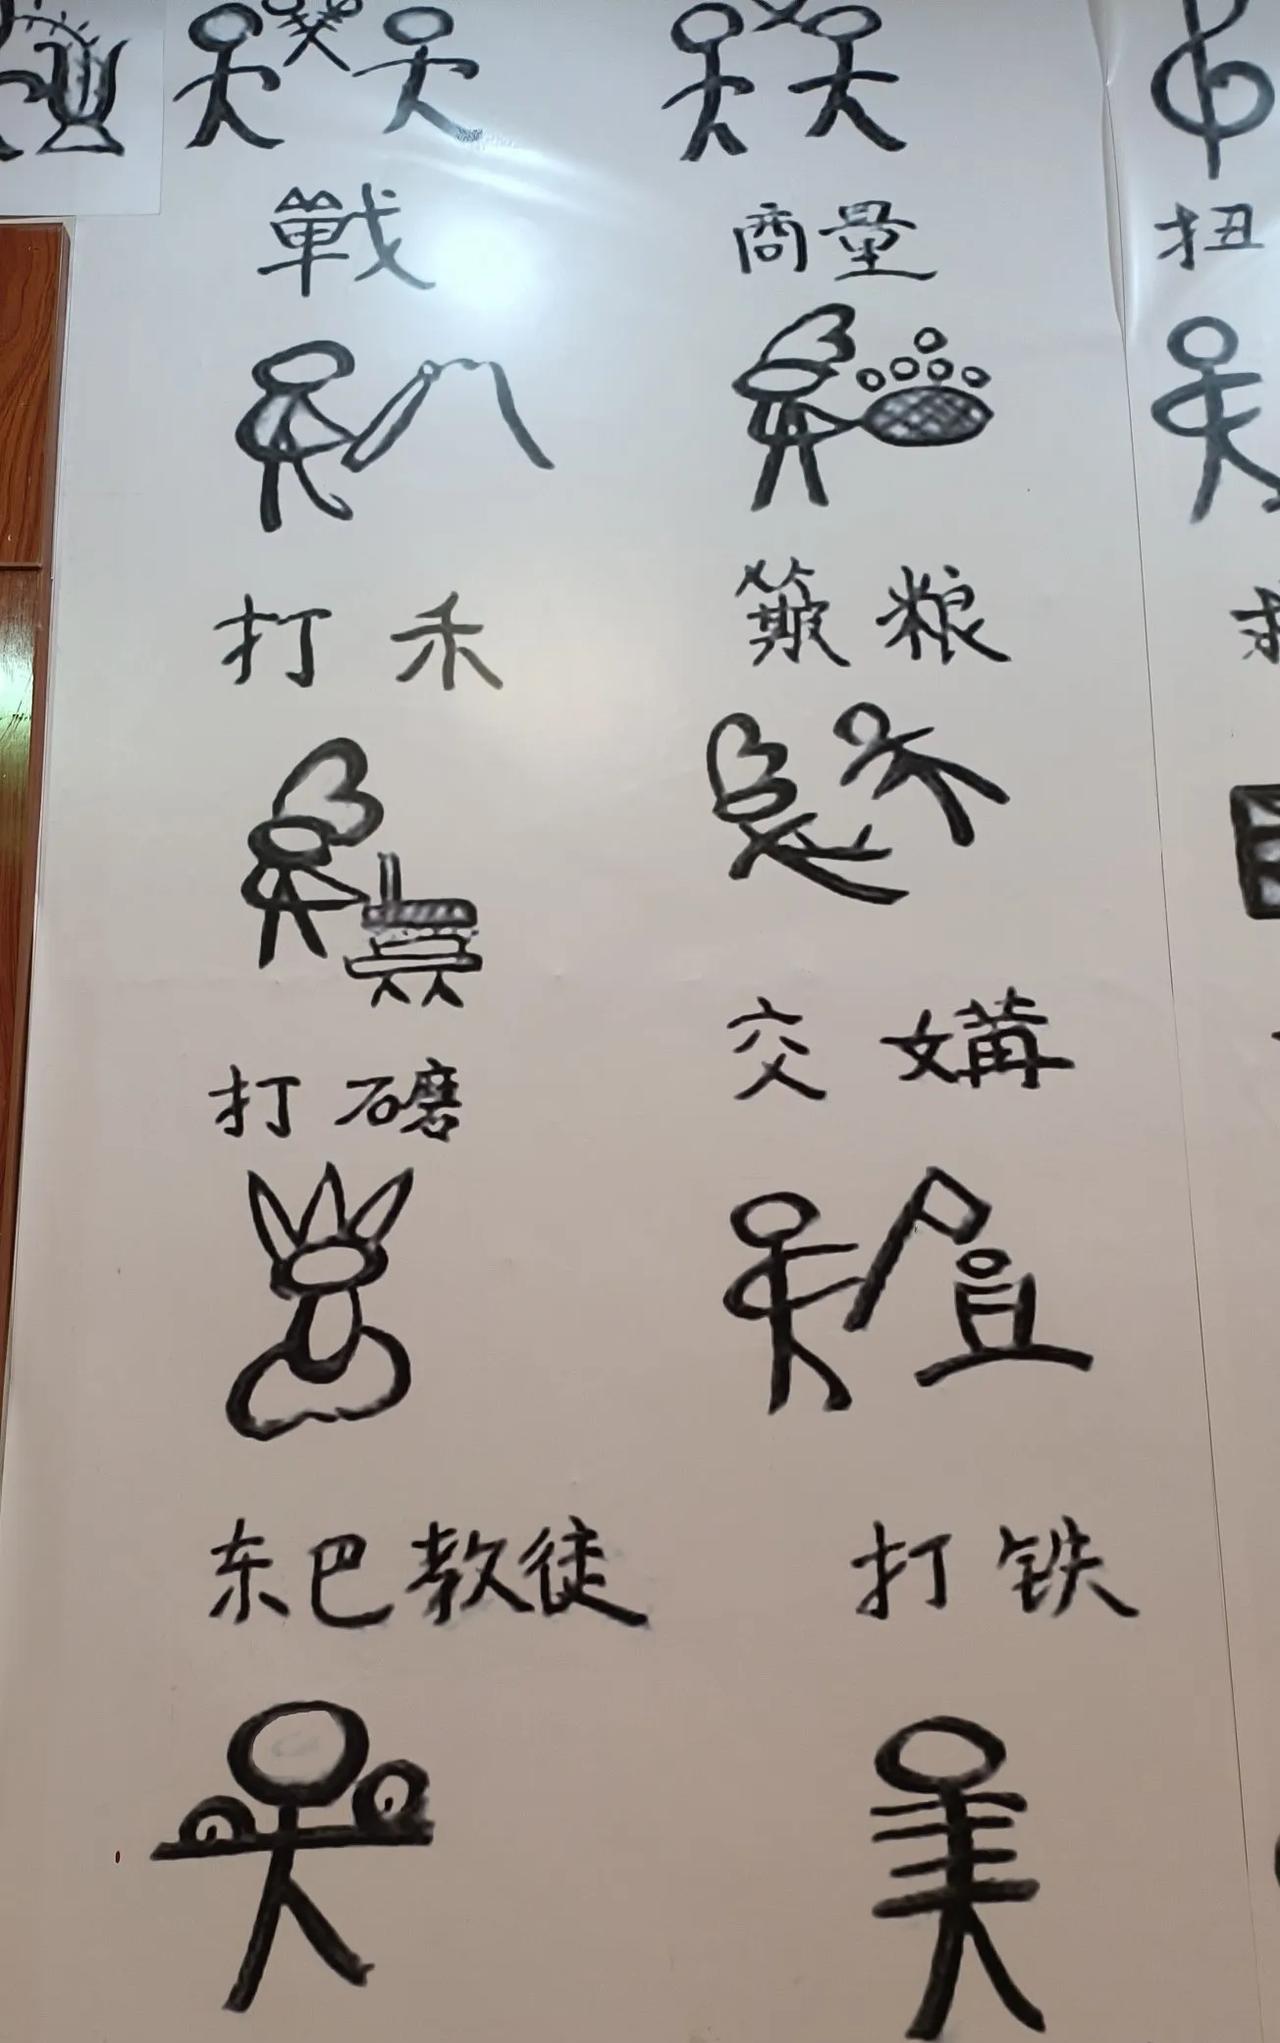 戰 商量 扭
打禾 簸粮
打磨 交媾
东巴教徒 打铁